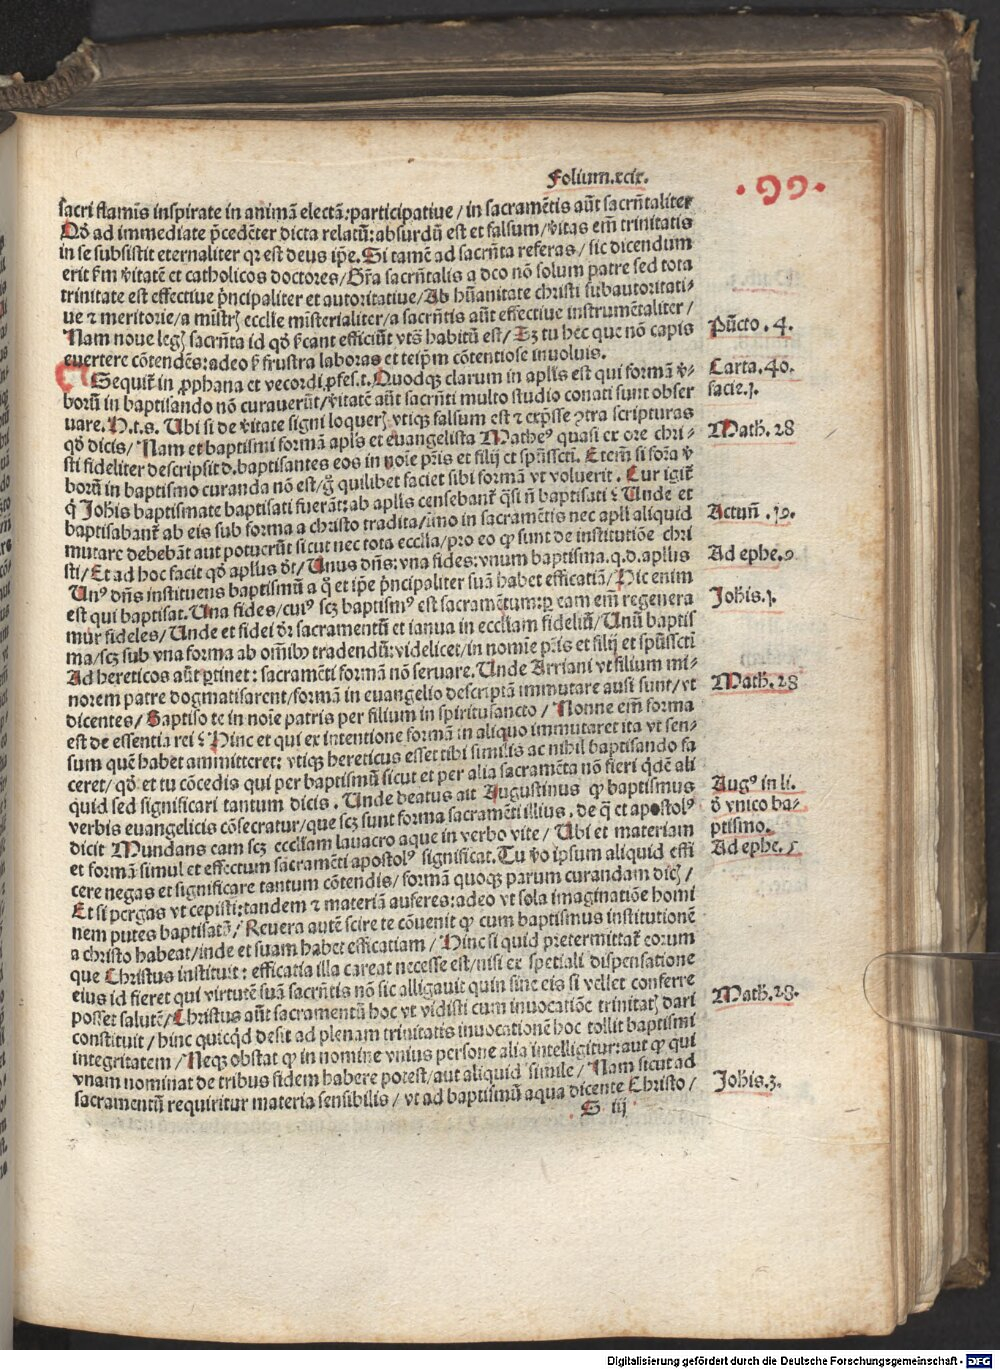 Folium.xcix.
.99.
sacri flamis inspirate in animā electā:participatiue/in sacramētis aūt sacrn̄taliter
Qd̄ ad immediate p̄cedēter dicta relatū:absurdū est et falsum/v̄itas em̄ trinitatis
in se subsistit eternaliter qz est deus ip̄e. Si tamē ad sacrn̄ta referas/sic dicendum
erit km̄ v̄itatē et catholicos doctores/Gr̄a sacrn̄talis a deo nō solum patre sed tota
trinitate est effectiue p̄ncipaliter et autoritatiue/Ab hūanitate christi subautoritati-
ue ⁊ meritorie/a mīstrꝫ ecclīe misterialiter/a sacrn̄tis aūt effectiue instrumētaliter/
Nam noue legꝫ sacrn̄ta id qd̄ signific̄ant efficiūt vts̄ habitū est/Sꝫ tu hec que nō capis
euertere cōtendēs:adeo frustra laboras et teip̄m cōtentiose inuoluis.
Puncto.4.
¶ Sequit̄ in ꝓphana et vecordi ꝓfes.t.Quodqꝫ clarum in apl̄is est qui formā v̄-
Carta.40.
borū in baptisando nō curauerūt/v̄itatē aūt sacrn̄ti multo studio conati sunt obser
facie.j.
uare.H.t.s. Ubi si de v̄itate signi loquerꝫ vtiqꝫ falsum est ⁊ exp̄sse ↄtra scripturas
qd̄ dicis/Nam et baptismi formā apl̄s et euangelista Matheꝰ quasi ex ore chri-
Math. 28
sti fideliter descripsit d.baptisantes eos in noīe pr̄is et filij et sp̄ūssctī. Etem̄ si forā v̄
borū in baptismo curanda nō est/g̊ quilibet faciet sibi formā vt voluerit. Cur igit̄
q̄ Johis baptismate baptisati fuerāt:ab apl̄is censebant̄ q̄si n̄ baptisati? Unde et
baptisabant̄ ab eis sub forma a christo tradita/imo in sacramētis nec apl̄i aliquid
Actuū .19.
mutare debebāt aut potuerūt sicut nec tota ecclīa/pro eo ꝙ sunt de institutiōe chri
sti/Et ad hoc facit qd̄ apl̄us dr̄t/Unus dn̄s:vna fides:vnum baptisma.q.d.apl̄us
Ad ephe.
Unꝰ dn̄s instituens baptismū a q̊ et ip̄e p̄ncipaliter suā habet efficatiā/Hic enim
est qui baptisat.Una fides/cuiꝰ scꝫ baptismꝰ est sacramētum:ꝑ eam em̄ regenera
Johis.j.
mur fideles/Unde et fidei dr̄ sacramentū et ianua in eccl̄iam fideliū/Unū baptis
ma/scꝫ sub vna forma ab om̄ibꝰ tradendū:videlicet/in nomīe pr̄is et filij et sp̄ūssctī
Ad hereticos aūt ꝑtinet: sacramēti formā nō seruare. Unde Arriani vt filium mi-
norem patre dogmatisarent/formā in euangelio descriptā immutare ausi sunt/vt
Math. 28
dicentes/Baptiso te in noīe patris per filium in spiritusancto/Nonne em̄ forma
est de essentia rei? Hinc et qui ex intentione formā in aliquo immutaret ita vt sen-
sum quē habet ammitteret: vtiqꝫ hereticus esset tibi similis ac nihil baptisando fa
ceret/qd̄ et tu cōcedis qui per baptismū sicut et per alia sacramēta nō fieri q̄dē ali
quid sed significari tantum dicis. Unde beatus ait Augustinus ꝙ baptismus
Augꝰ in li.
verbis euangelicis cōsecratur/que scꝫ sunt forma sacramēti illius. de q̊ et apostolꝰ
d̄ vnico ba-
dicit Mundans eam scꝫ eccl̄iam lauacro aque in verbo vite/Ubi et materiam
ptismo.
et formā simul et effectum sacramēti apostolꝰ significat.Tu v̄o ipsum aliquid effi
Ad ephe.5
cere negas et significare tantum cōtendis/formā quoqꝫ parum curandam dicꝫ/
Et si pergas vt cepisti:tandem ⁊ materiā auferes:adeo vt sola imaginatiōe homi
nem putes baptisatū/Reuera autē scire te cōuenit ꝙ cum baptismus institutionē
a christo habeat/inde et suam habet efficatiam/Hinc si quid pretermittat̄ eorum
que Christus instituit: efficatia illa careat necesse est/nisi ex spetiali dispensatione
eius id fieret qui virtutē suā sacrn̄tis nō sic alligauit quin sine eis si vellet conferre
posset salutē/Christus aūt sacramentū hoc vt vidisti cum inuocatiōe trinitatꝫ dari
Math.28.
constituit/hinc quicqd̄ desit ad plenam trinitatis inuocationē hoc tollit baptismi
integritatem/Neqꝫ obstat ꝙ in nomine vnius persone alia intelligitur:aut ꝙ qui
vnam nominat de tribus fidem habere potest/aut aliquid simile/Nam sicut ad
sacramentū requiritur materia sensibilis/vt ad baptismū aqua dicente Christo/
Johis.3.
S iij
Digitalisierung gefördert durch die Deutsche Forschungsgemeinschaft - DFG